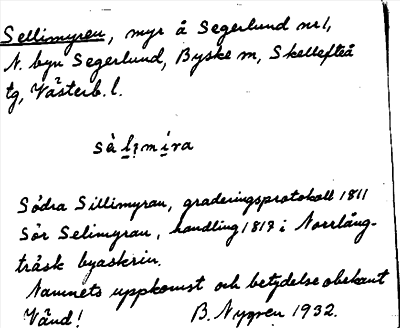 Sellimyren, myr å Segerlund nr 1,
N. byn Segerlund, Byske m, Skellefteå
tg, Västerb. l.
sèlimíra
Södra Sillimyran, graderingsprotokoll 1811
Sör Selimyran, handling 1817 i Norrlång-
träsk byaskrin.
Namnets uppkomst och betydelse obekant
Vänd! B. Nygren 1932.